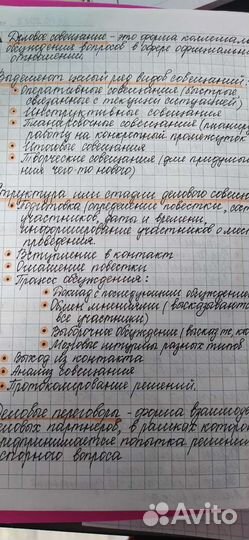 Деловое совещание - это форма коллектив
обсуждения вопросов в сфере официальн
отношений.
Выделяют целый ряд видов совещаний:
Оперативные совещания (быстрые
связанные с текущей ситуацией)
Инструктивные совещания
Планировочные совещания (планиру
работу на конкретный промежуток
Итоговые совещания
Творческие совещания (для придумыв
ния чего-то нового)
Структура или стадии делового совещ
Подготовка (определение повестки, со
участников, даты и времени,
информирование участников о мест
проведения.
Вступление в контакт
Оглашение повестки
Процесс обсуждения:
Доклад с последующим обсуждение
Обмен мнениями (высказывают
все участники)
Выборочное обсуждение (выскаж
Мозговые штурмы разных типов
Выход из контакта
Анализ совещания
Протоколирование решений.
Деловые переговоры - форма взаимод
деловых партнёров, в рамках которой
предпринимается попытка решения
спорного вопроса
Avito